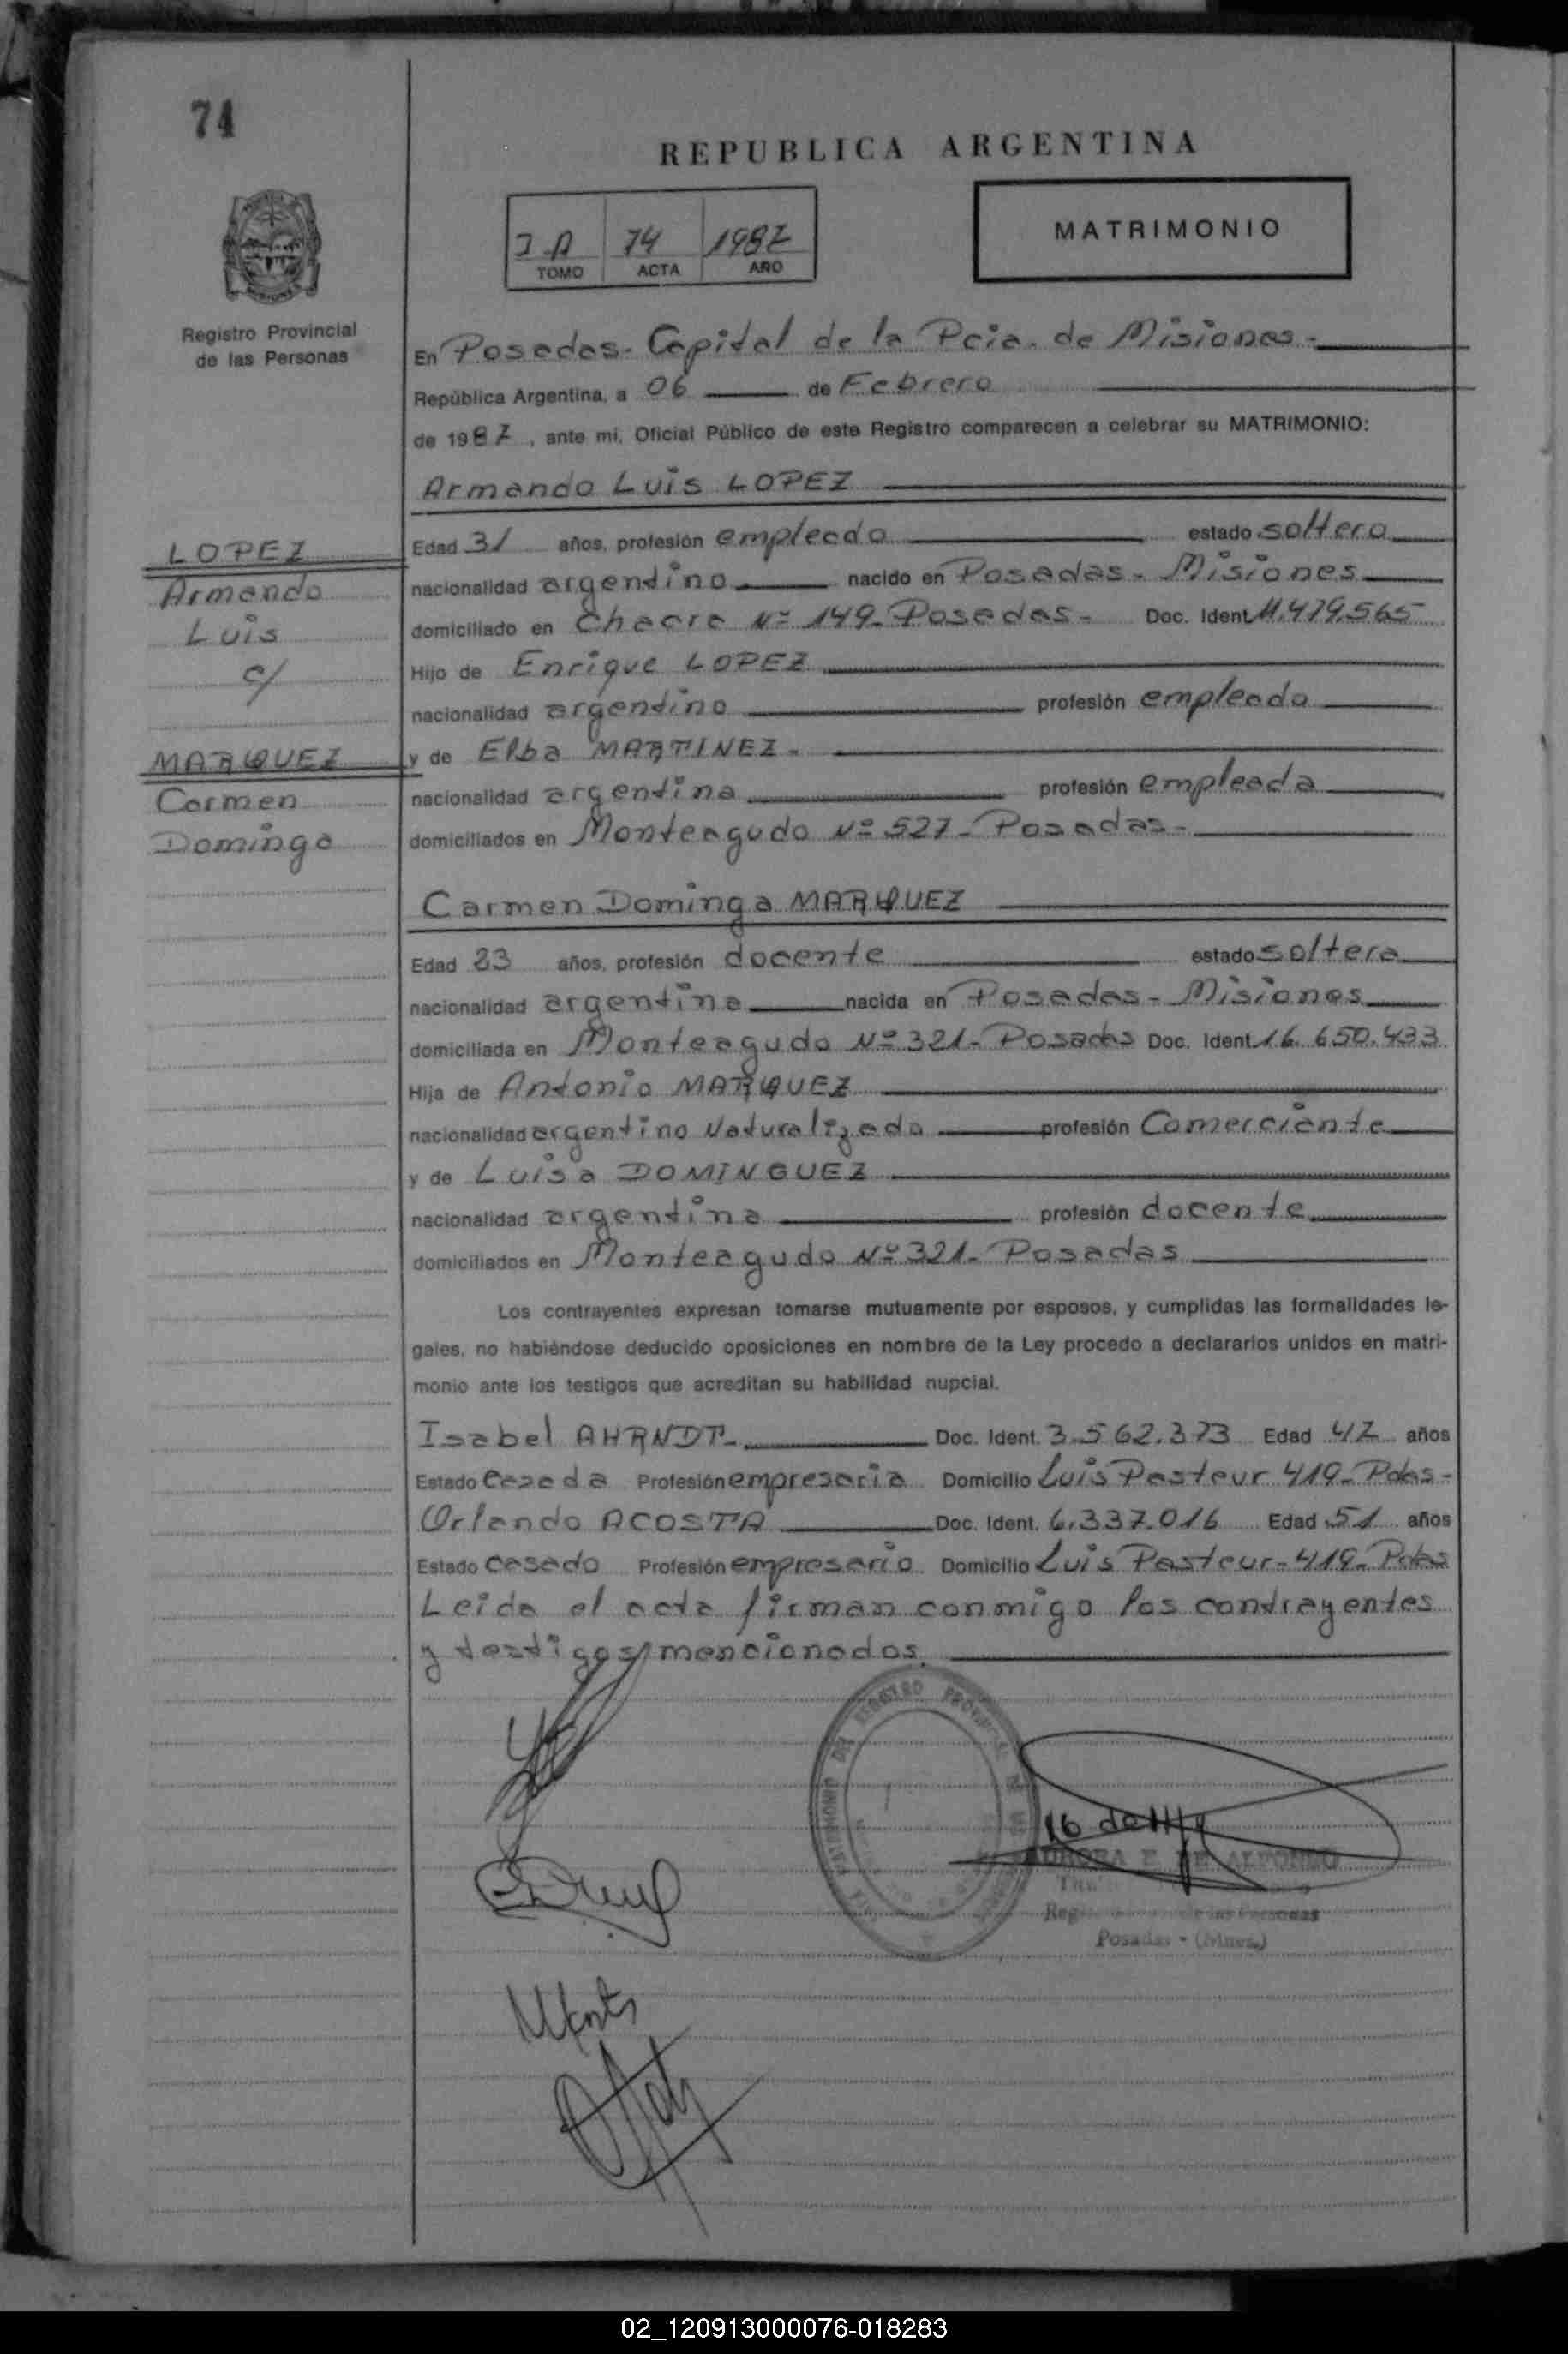 74
REPUBLICA ARGENTINA
MATRIMONIO
I A 74 1987
TOMO ACTA AÑO
Registro Provincial
de las Personas
En Posadas- Capital de la Pcia. de Misiones-
República Argentina, a 06 de Febrero
de 1987, ante mi, Oficial Público de este Registro comparecen a celebrar su MATRIMONIO:
Armando Luis LOPEZ
LOPEZ
Armando
Luis
c/
MARQUEZ
Carmen
Dominga
Edad 31 años, profesión empleado estado soltero
nacionalidad argentino nacido en Posadas- Misiones
domiciliado en Chacra Nº 149- Posadas- Doc. Ident. 11.479.565
Hijo de Enrique LOPEZ
nacionalidad argentino profesión empleado
y de Elba MARTINEZ-
nacionalidad argentina profesión empleada
domiciliados en Monteagudo Nº 527- Posadas-
Carmen Dominga MARQUEZ
Edad 23 años, profesión docente estado soltera
nacionalidad argentina nacida en Posadas- Misiones
domiciliada en Monteagudo Nº 321- Posadas Doc. Ident. 16.650.433
Hija de Antonio MARQUEZ
nacionalidad argentino Naturalizado profesión Comerciante
y de Luisa DOMINGUEZ
nacionalidad argentina profesión docente
domiciliados en Monteagudo Nº 321- Posadas
Los contrayentes expresan tomarse mutuamente por esposos, y cumplidas las formalidades le-
gales, no habiéndose deducido oposiciones en nombre de la Ley procedo a declararlos unidos en matri-
monio ante los testigos que acreditan su habilidad nupcial.
Isabel AHRNDT- Doc. Ident. 3.562.373 Edad 47 años
Estado Casada Profesión empresaria Domicilio Luis Pasteur 419- Pdas-
Orlando ACOSTA Doc. Ident. 6.337.016 Edad 51 años
Estado casado Profesión empresario Domicilio Luis Pasteur- 419- Pdas
Leida el acta firman conmigo los contrayentes
y testigos mencionados.
REGISTRO PROVINCIAL DE
AURORA E. DE ALFONSO
de las Personas
Posadas - (Mnes.)
02_120913000076-018283